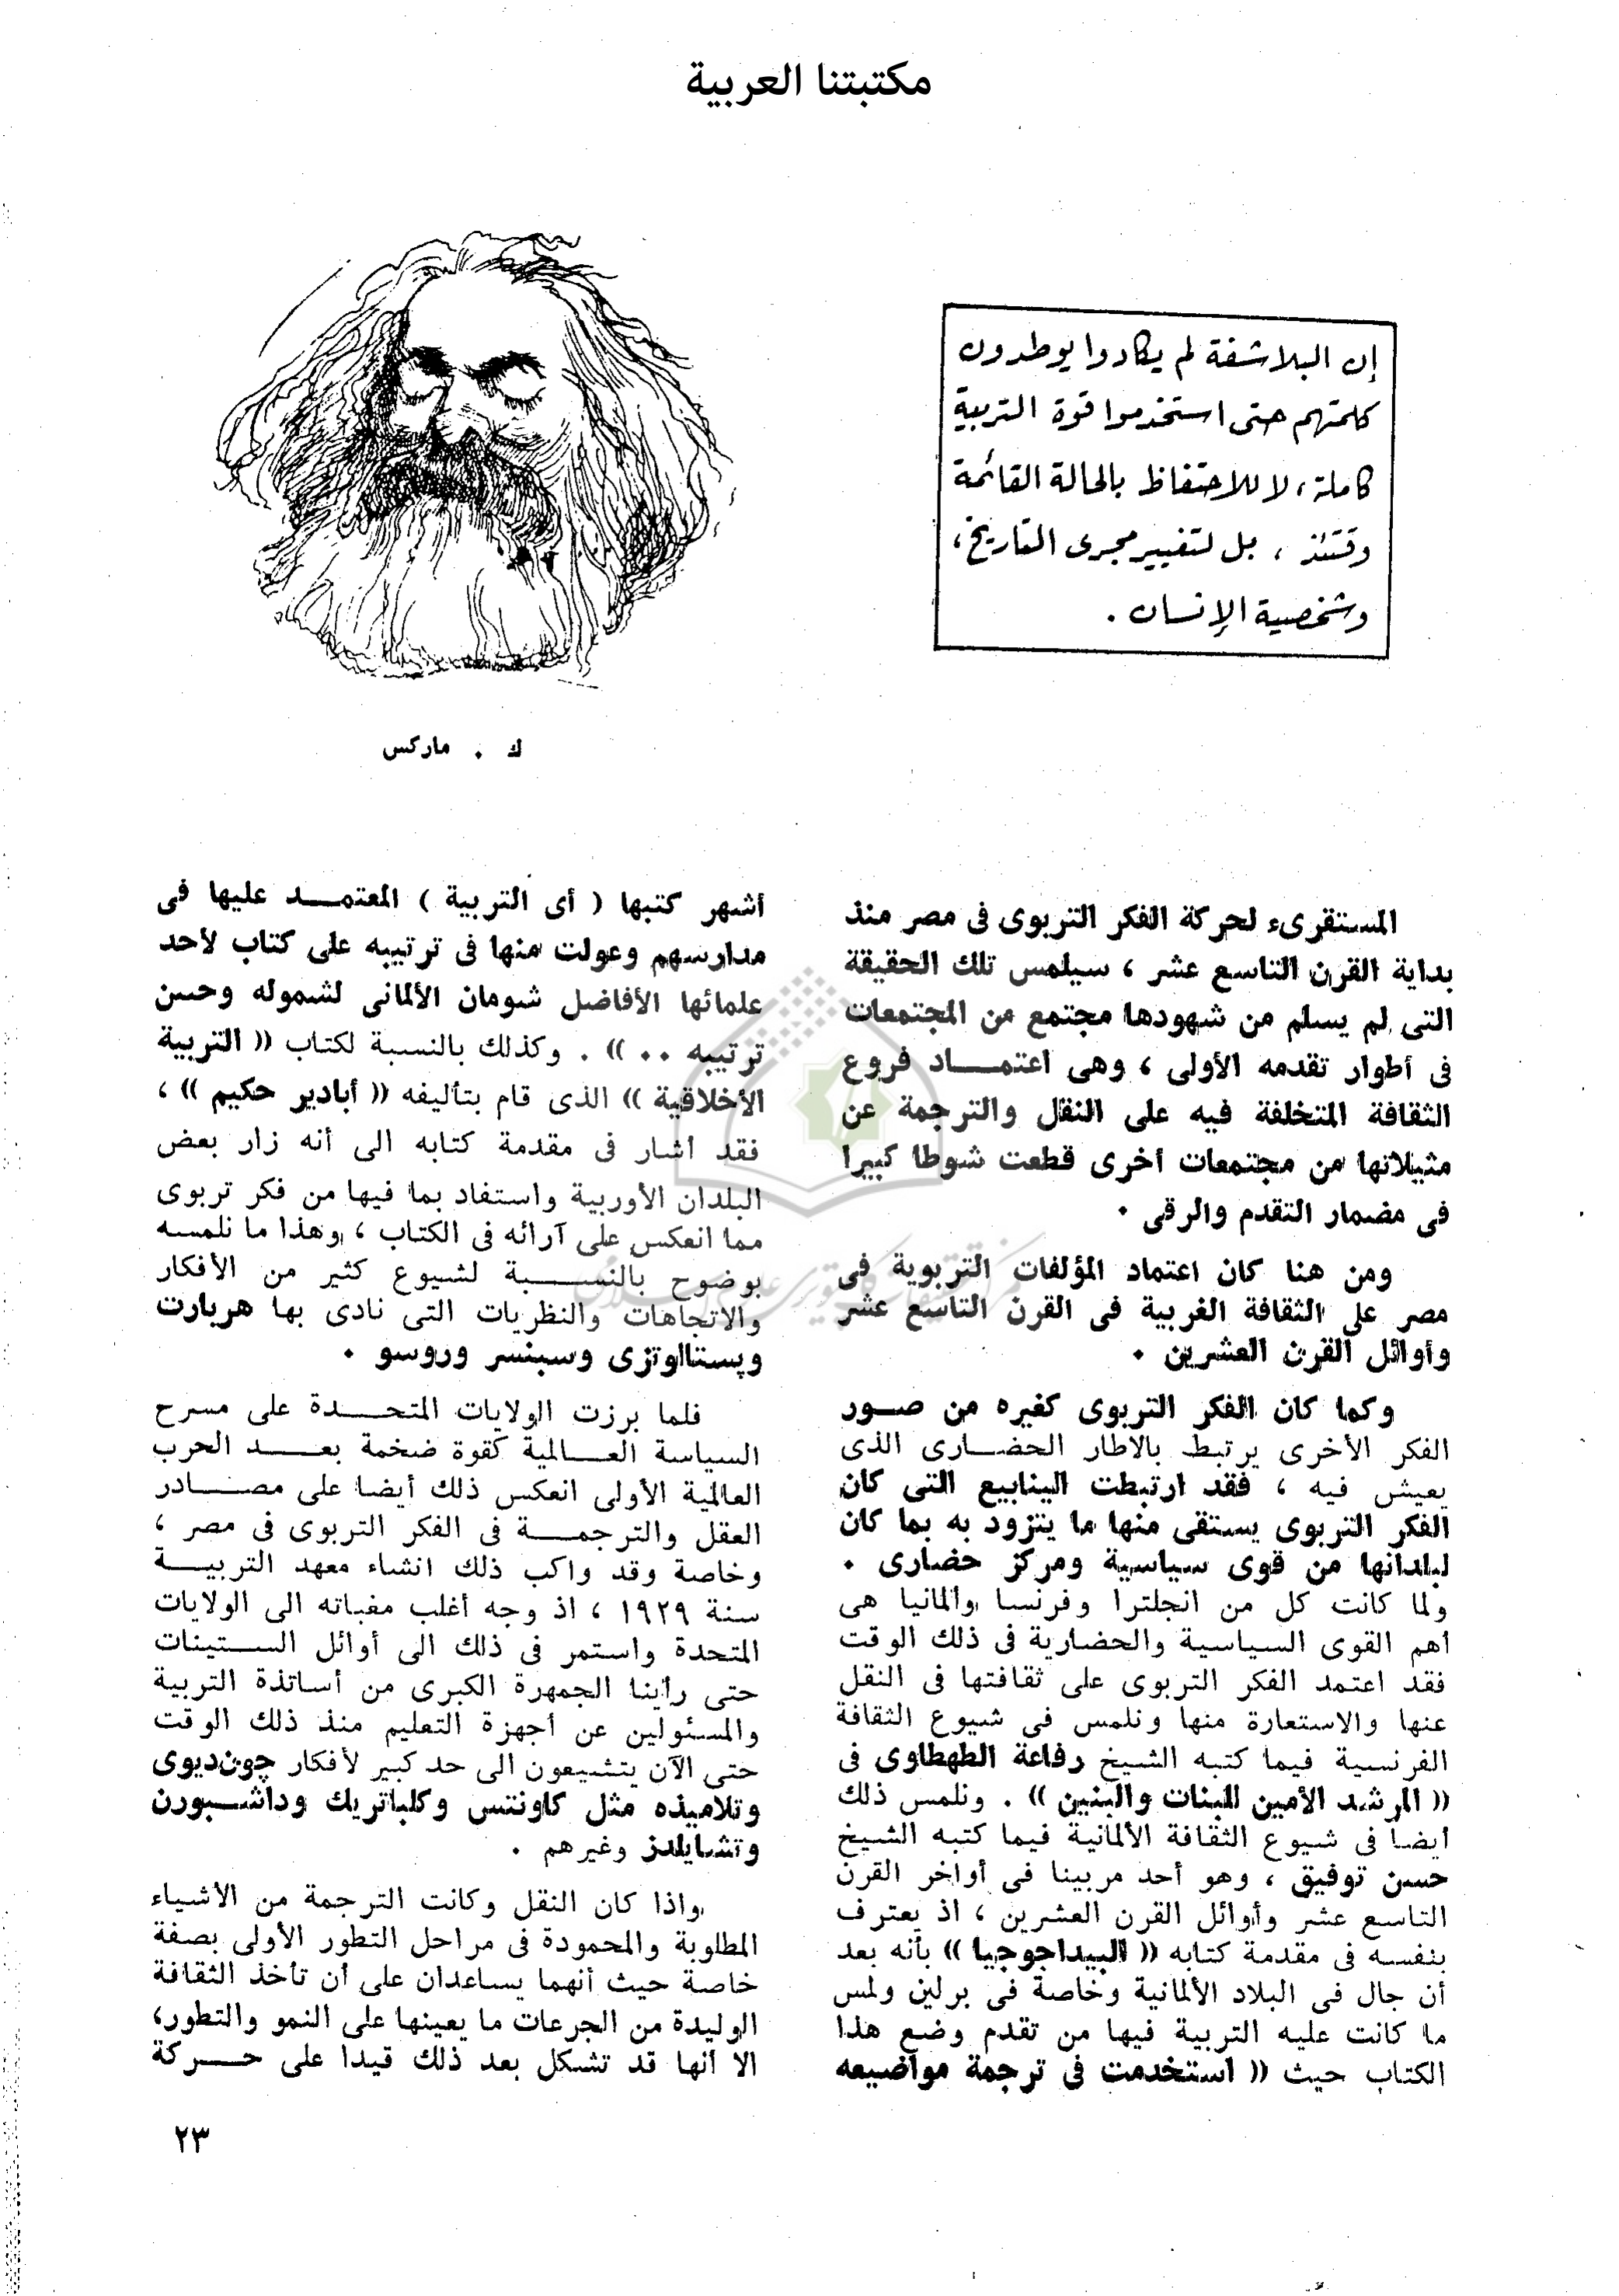 مكتبتنا العربية
إن البلاشفة لم يكادوا يوطدون
كلمتهم حتى استخدموا قوة التربية
كاملة، لا للاحتفاظ بالحالة القائمة
وقتئذ ، بل لتغيير مجرى التاريخ،
وشخصية الإنسان .
ك . ماركس
المستقرىء لحركة الفكر التربوى فى مصر منذ
بداية القرن التاسع عشر ، سيلمس تلك الحقيقة
التى لم يسلم من شهودها مجتمع من المجتمعات
فى أطوار تقدمه الأولى ، وهى اعتمــاد فروع
الثقافة المتخلفة فيه على النقل والترجمة عن
مثيلاتها من مجتمعات أخرى قطعت شوطا كبيرا
فى مضمار التقدم والرقى .
ومن هنا كان اعتماد المؤلفات التربوية فى
مصر على الثقافة الغربية فى القرن التاسع عشر
وأوائل القرن العشرين .
وكما كان الفكر التربوى كغيره من صــور
الفكر الأخرى يرتبط بالاطار الحضــارى الذى
يعيش فيه ، فقد ارتبطت الينابيع التى كان
الفكر التربوى يستقى منها ما يتزود به بما كان
لبلدانها من قوى سياسية ومركز حضارى .
ولما كانت كل من انجلترا وفرنسا وألمانيا هى
أهم القوى السياسية والحضارية فى ذلك الوقت
فقد اعتمد الفكر التربوى على ثقافتها فى النقل
عنها والاستعارة منها ونلمس فى شيوع الثقافة
الفرنسية فيما كتبه الشيخ رفاعة الطهطاوى فى
« المرشد الأمين للبنات والبنين » . ونلمس ذلك
أيضا فى شيوع الثقافة الألمانية فيما كتبه الشيخ
حسن توفيق ، وهو أحد مربينا فى أواخر القرن
التاسع عشر وأوائل القرن العشرين ، اذ يعترف
بنفسه فى مقدمة كتابه « البيداجوجيا » بأنه بعد
أن جال فى البلاد الألمانية وخاصة فى برلين ولمس
ما كانت عليه التربية فيها من تقدم وضع هذا
الكتاب حيث « استخدمت فى ترجمة مواضيعه
أشهر كتبها ( أى التربية ) المعتمــد عليها فى
مدارسهم وعولت منها فى ترتيبه على كتاب لأحد
علمائها الأفاضل شومان الألمانى لشموله وحسن
ترتيبه .. » . وكذلك بالنسبة لكتاب « التربية
الأخلاقية » الذى قام بتأليفه « أبادير حكيم » ،
فقد أشار فى مقدمة كتابه الى أنه زار بعض
البلدان الأوربية واستفاد بما فيها من فكر تربوى
مما انعكس على آرائه فى الكتاب ، وهذا ما نلمسه
بوضوح بالنســبة لشيوع كثير من الأفكار
والاتجاهات والنظريات التى نادى بها هربارت
وپستالوتزى وسبنسر وروسو .
فلما برزت الولايات المتحــدة على مسرح
السياسة العــالمية كقوة ضخمة بعــد الحرب
العالمية الأولى انعكس ذلك أيضا على مصــادر
العقل والترجمــة فى الفكر التربوى فى مصر ،
وخاصة وقد واكب ذلك انشاء معهد التربيــة
سنة ١٩٢٩ ، اذ وجه أغلب مغباته الى الولايات
المتحدة واستمر فى ذلك الى أوائل الســتينات
حتى رأينا الجمهرة الكبرى من أساتذة التربية
والمسئولين عن أجهزة التعليم منذ ذلك الوقت
حتى الآن يتشيعون الى حد كبير لأفكار چون‌ديوى
وتلاميذه مثل كاونتس وكلباتريك وداشــبورن
وتشايلدز وغيرهم .
واذا كان النقل وكانت الترجمة من الأشياء
المطلوبة والمحمودة فى مراحل التطور الأولى بصفة
خاصة حيث أنهما يساعدان على أن تأخذ الثقافة
الوليدة من الجرعات ما يعينها على النمو والتطور،
الا أنها قد تشكل بعد ذلك قيدا على حــركة
٢٣